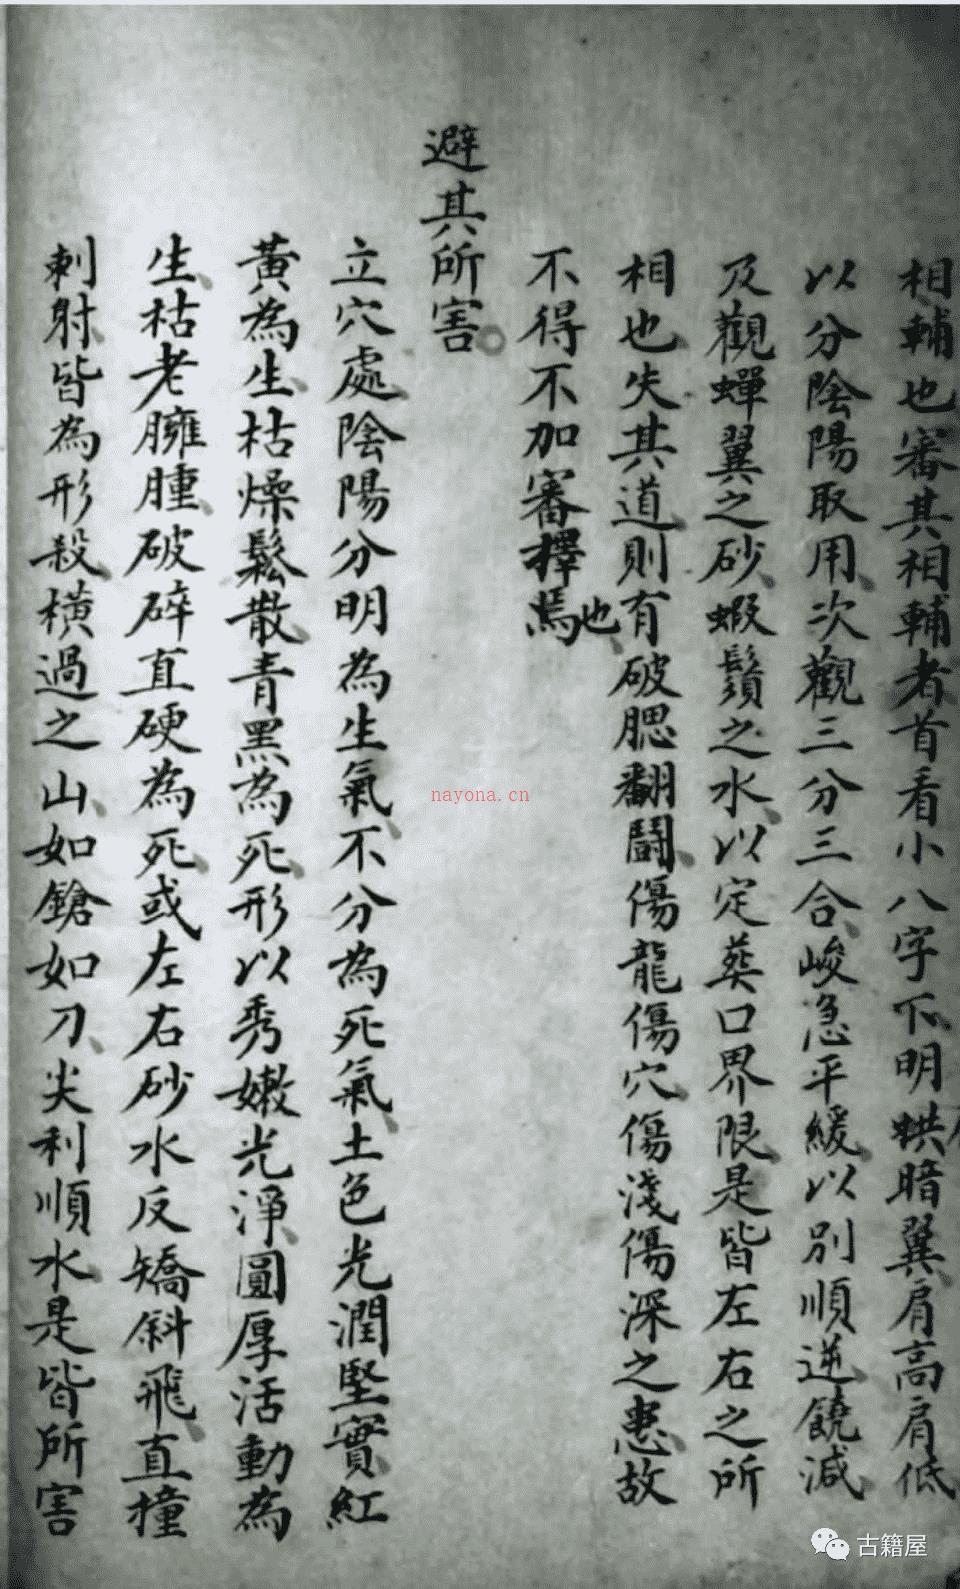 相輔也審其相輔者首看小八字下明蚌暗翼肩高肩低
以分陰陽取用次觀三分三合峻急平緩以別順逆饒減
及觀蟬翼之砂蝦鬚之水以定葬口界限是皆左右之所
相也失其道則有破腮翻鬪傷龍傷穴傷淺傷深之患故
不得不加審擇焉也
避其所害
立穴處陰陽分明為生氣不分為死氣土色光潤堅實紅
黃為生枯燥鬆散青黑為死形以秀嫩光淨圓厚活動為
生枯老臃腫破碎直硬為死或左右砂水反矯斜飛直撞
刺射皆為形殺橫過之山如鎗如刀尖利順水是皆所害
nayona.cn
古籍屋